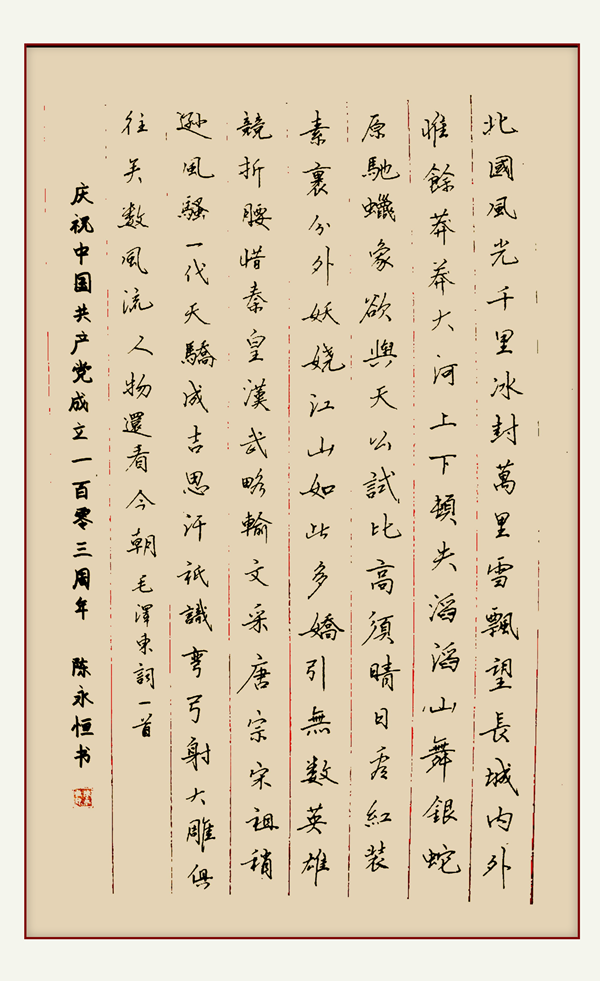 北國風光千里冰封萬里雪飄望長城內外
惟餘莽莽大河上下頓失滔滔山舞銀蛇
原馳蠟象欲與天公試比高須晴日看紅装
素裹分外妖娆江山如此多嬌引無数英雄
競折腰惜秦皇漢武略輸文采唐宗宋祖稍
遜風騷一代天驕成吉思汗祇識彎弓射大雕俱
往矣数風流人物還看今朝毛澤東詞一首
庆祝中国共产党成立一百零三周年 陈永恒书